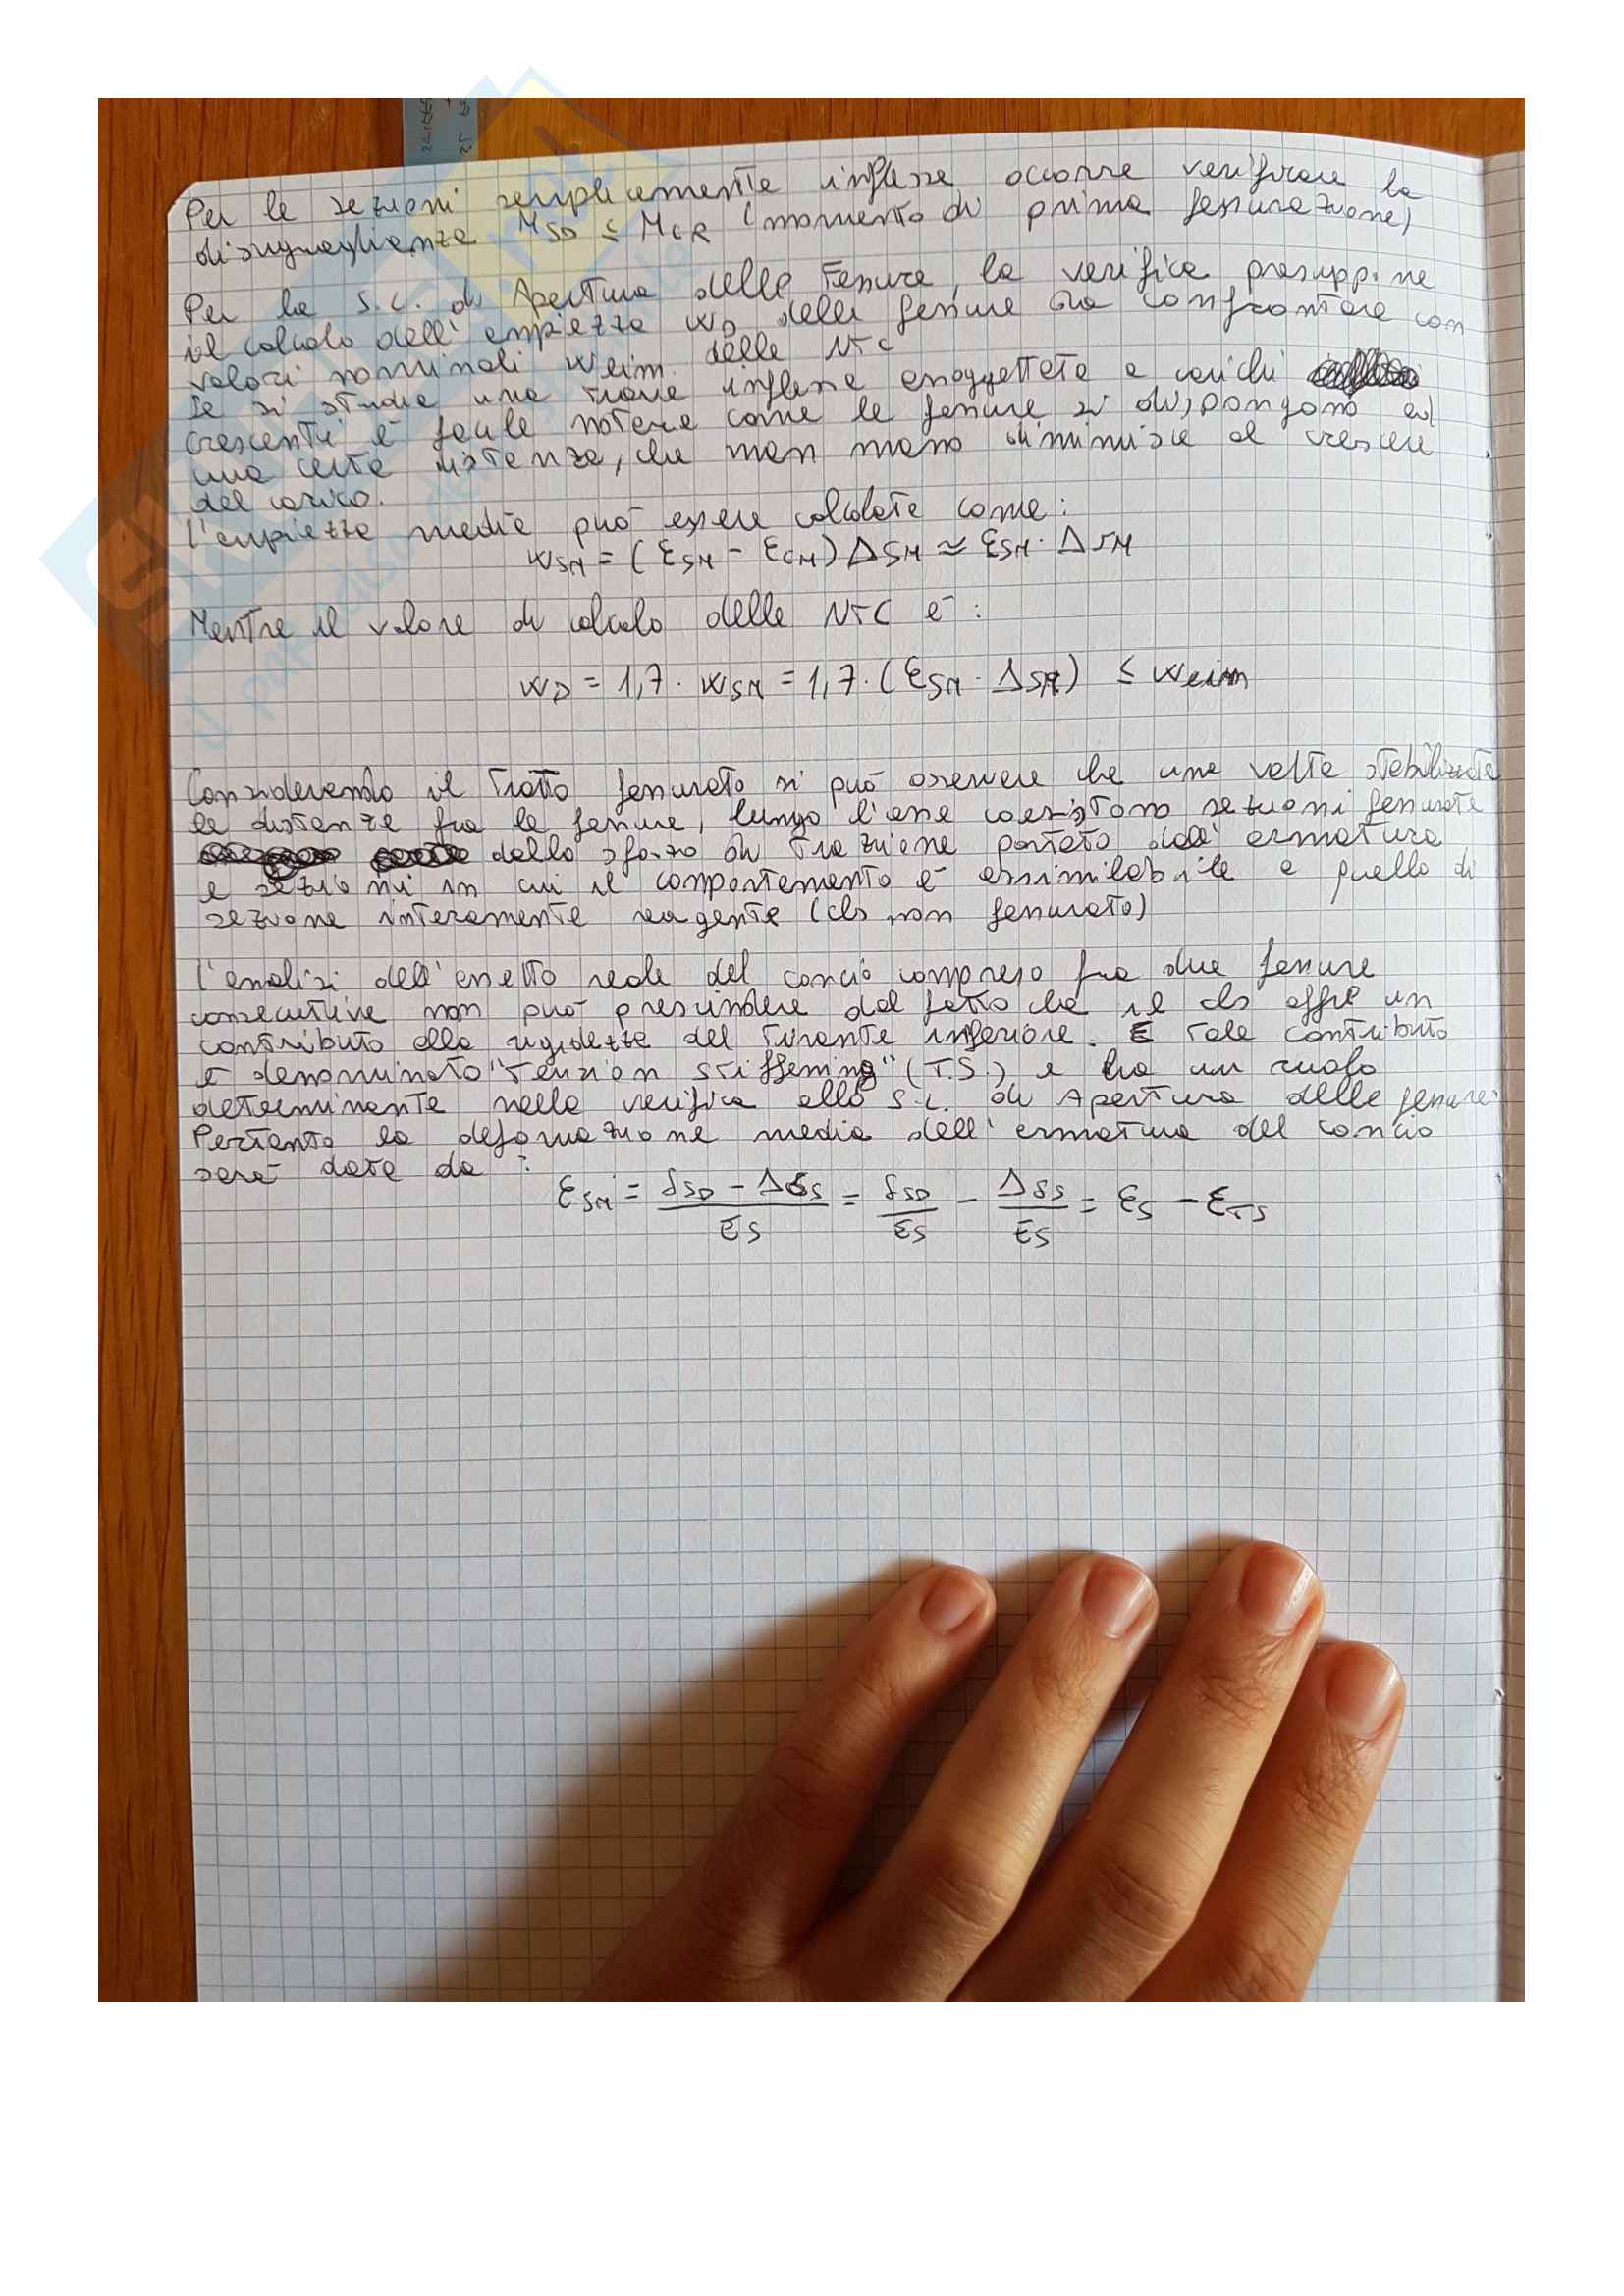 Per le sezioni semplicemente inflesse occorre verificare la
disuguaglianza M_SD ≤ M_CR (momento di prima fessurazione)
Per lo S.L. di Apertura delle Fessure, la verifica presuppone
il calcolo dell'ampiezza w_D delle fessure da confrontare con
valori nominali w_lim. delle NTC
Se si studia una trave inflessa assoggettata a carichi
crescenti è facile notare come le fessure si dispongono ad
una certa distanza, che man mano diminuisce al crescere
del carico.
L'ampiezza media può essere calcolata come:
w_SM = (ε_SM - ε_CM) Δ_SM ≈ ε_SM · Δ_SM
Mentre il valore di calcolo delle NTC è:
w_D = 1,7 · w_SM = 1,7 · (ε_SM · Δ_SM) ≤ w_lim
Considerando il tratto fessurato si può osservare che una volta stabilizzate
le distanze fra le fessure, lungo l'asse coesistono sezioni fessurate
dallo sforzo di trazione portato dall' armatura
e sezioni in cui il comportamento è assimilabile a quello di
sezione interamente reagente (cls non fessurato)
L'analisi dell'assetto reale del concio compreso fra due fessure
consecutive non può prescindere dal fatto che il cls offre un
contributo alla rigidezza del tirante inferiore. E tale contributo
è denominato "Tension stiffening" (T.S.) e ha un ruolo
determinante nella verifica allo S.L. di Apertura delle fessure.
Pertanto la deformazione media dell' armatura del concio
sarà data da :
ε_SM = (σ_SD - Δσ_S) / E_S = σ_SD / E_S - Δσ_S / E_S = ε_S - ε_TS